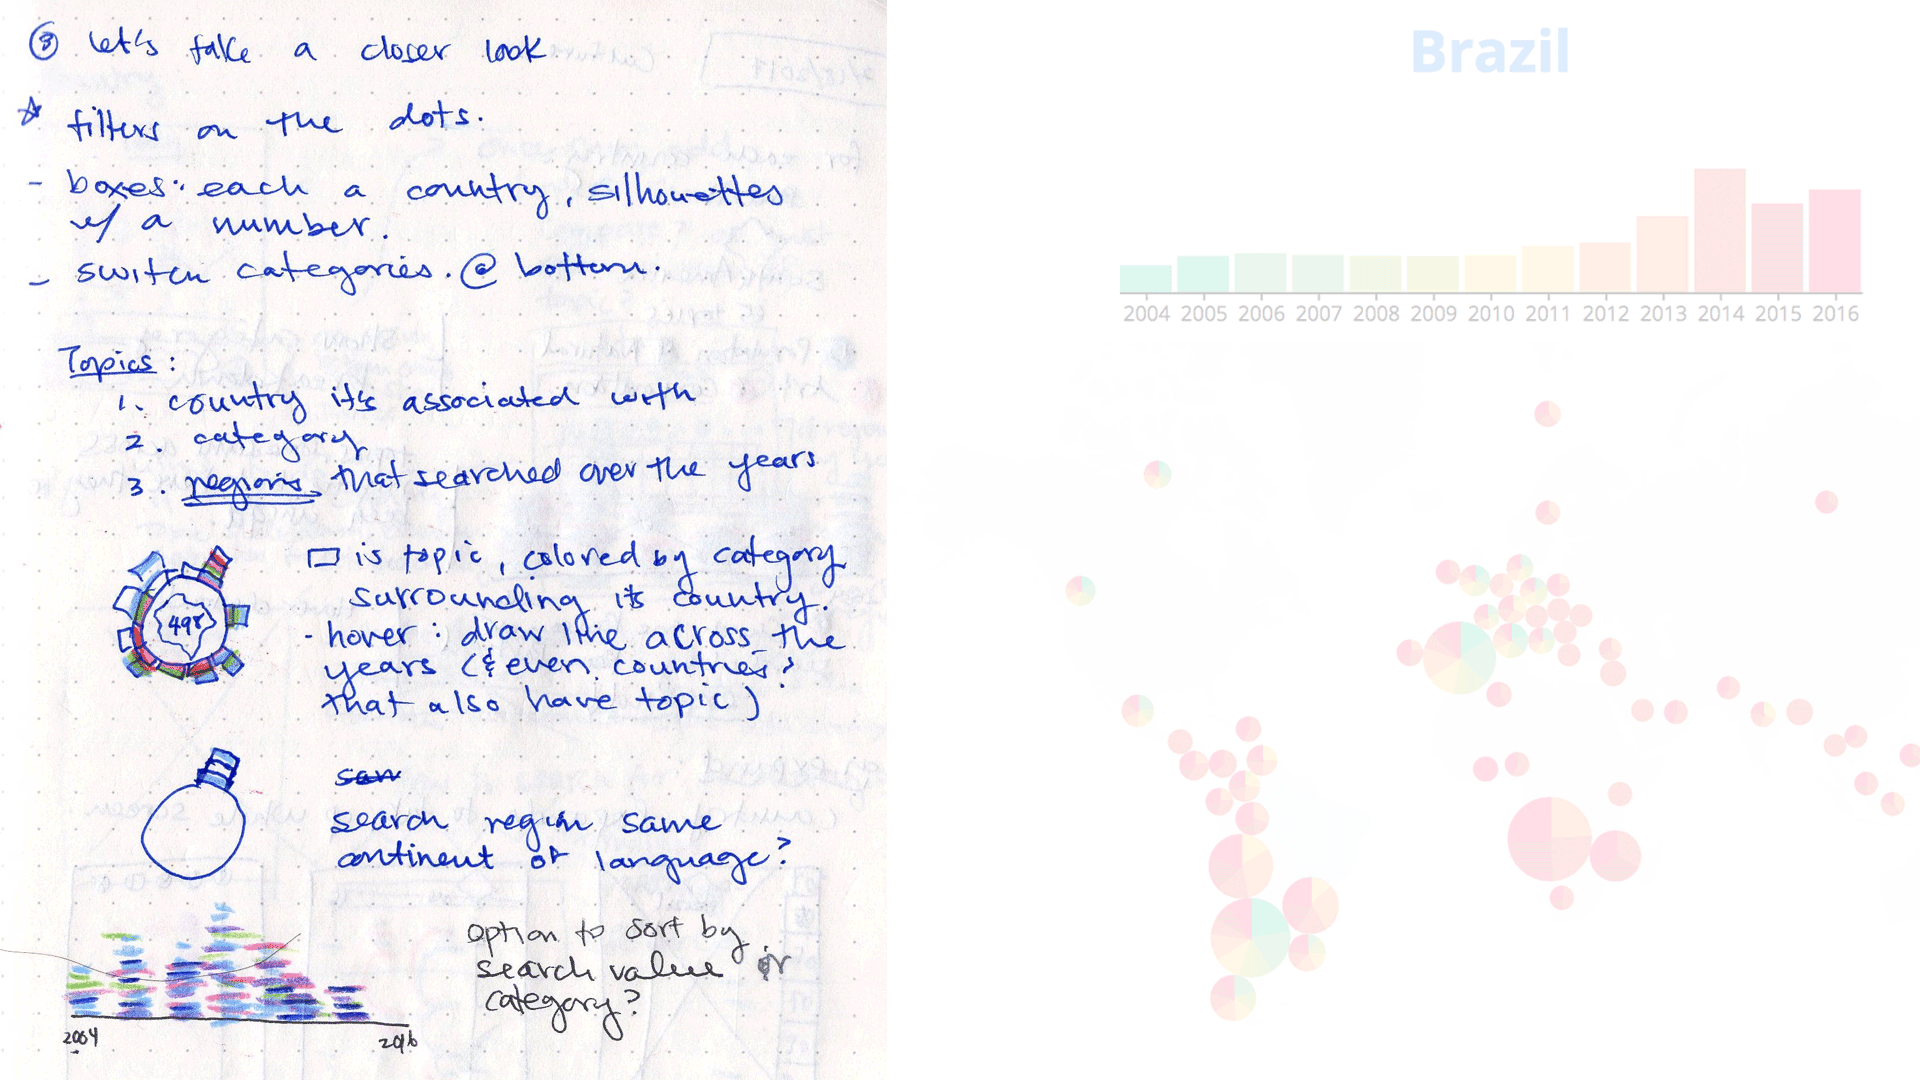 ③ let's take a closer look
☆ filters on the dots.
- boxes: each a country, silhouettes
w/ a number.
- switch categories. @ bottom.
Topics:
1. country it's associated with
2. category
3. regions that searched over the years
498
▭ is topic, colored by category
surrounding its country.
- hover: draw line across the
years (& even countries?
that also have topic)
search region same
continent or language?
option to sort by
search value or
category?
2004 2016
Brazil
2004 2005 2006 2007 2008 2009 2010 2011 2012 2013 2014 2015 2016